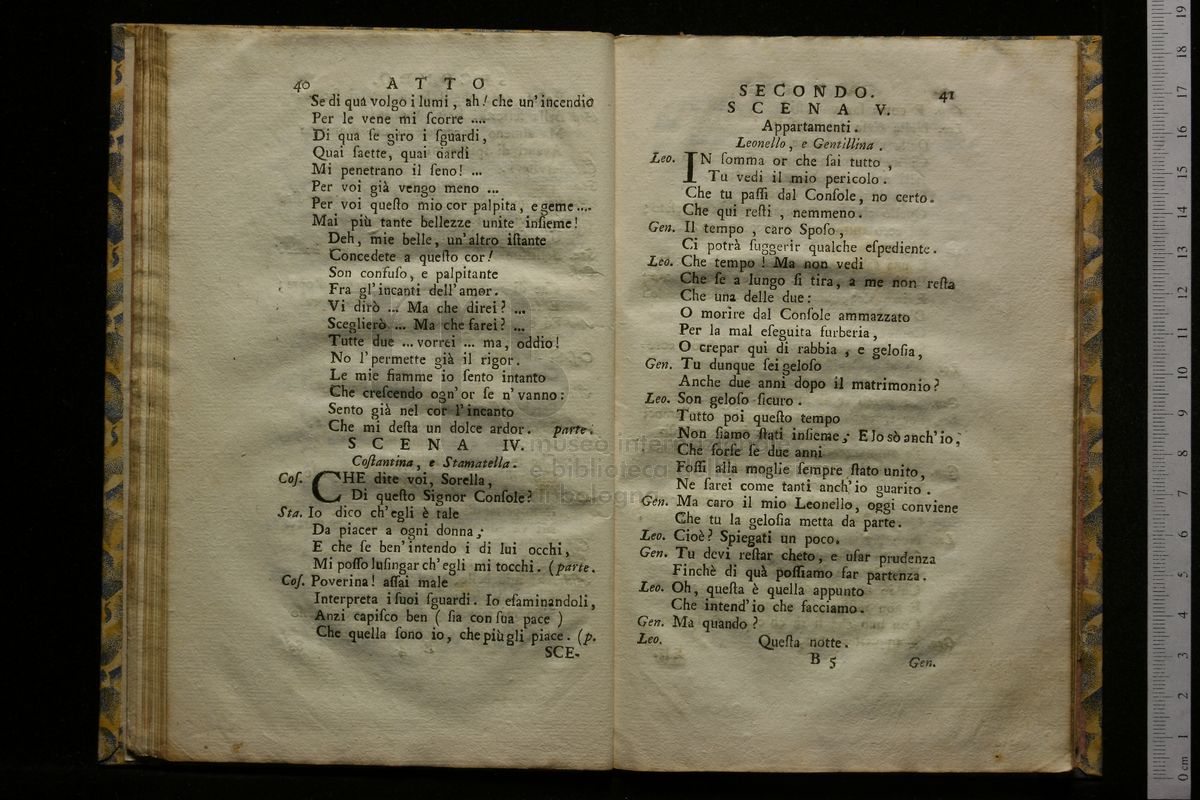 40 ATTO
Se di qua volgo i lumi, ah! che un'incendio
Per le vene mi ſcorre ....
Di qua ſe giro i ſguardi,
Quai ſaette, quai dardi
Mi penetrano il ſeno! ...
Per voi già vengo meno ...
Per voi queſto mio cor palpita, e geme ....
Mai più tante bellezze unite inſieme!
Deh, mie belle, un'altro iſtante
Concedete a queſto cor!
Son confuſo, e palpitante
Fra gl'incanti dell'amor.
Vi dirò ... Ma che direi? ...
Sceglierò ... Ma che farei? ...
Tutte due ... vorrei ... ma, oddio!
No l'permette già il rigor.
Le mie fiamme io ſento intanto
Che creſcendo ogn'or ſe n'vanno:
Sento già nel cor l'incanto
Che mi deſta un dolce ardor. parte.
SCENA IV.
Coſtantina, e Stamatella.
Coſ. CHE dite voi, Sorella,
Di queſto Signor Conſole?
Sta. Io dico ch'egli è tale
Da piacer a ogni donna;
E che ſe ben'intendo i di lui occhi,
Mi poſſo luſingar ch'egli mi tocchi. (parte.
Coſ. Poverina! aſſai male
Interpreta i ſuoi ſguardi. Io eſaminandoli,
Anzi capiſco ben ( ſia con ſua pace )
Che quella ſono io, che più gli piace. (p.
SCE-
SECONDO. 41
SCENA V.
Appartamenti.
Leonello, e Gentillina.
Leo. IN ſomma or che ſai tutto,
Tu vedi il mio pericolo.
Che tu paſſi dal Conſole, no certo.
Che qui reſti, nemmeno.
Gen. Il tempo, caro Spoſo,
Ci potrà ſuggerir qualche eſpediente.
Leo. Che tempo! Ma non vedi
Che ſe a lungo ſi tira, a me non reſta
Che una delle due:
O morire dal Conſole ammazzato
Per la mal eſeguita furberia,
O crepar qui di rabbia, e geloſia,
Gen. Tu dunque ſei geloſo
Anche due anni dopo il matrimonio?
Leo. Son geloſo ſicuro.
Tutto poi queſto tempo
Non ſiamo ſtati inſieme; E lo sò anch'io,
Che forſe ſe due anni
Foſſi alla moglie ſempre ſtato unito,
Ne ſarei come tanti anch'io guarito.
Gen. Ma caro il mio Leonello, oggi conviene
Che tu la geloſia metta da parte.
Leo. Cioè? Spiegati un poco.
Gen. Tu devi reſtar cheto, e uſar prudenza
Finchè di quà poſſiamo far partenza.
Leo. Oh, queſta è quella appunto
Che intend'io che facciamo.
Gen. Ma quando?
Leo. Queſta notte.
B 5 Gen.
museo internazionale
e biblioteca
di bologna
0 cm 1 2 3 4 5 6 7 8 9 10 11 12 13 14 15 16 17 18 19